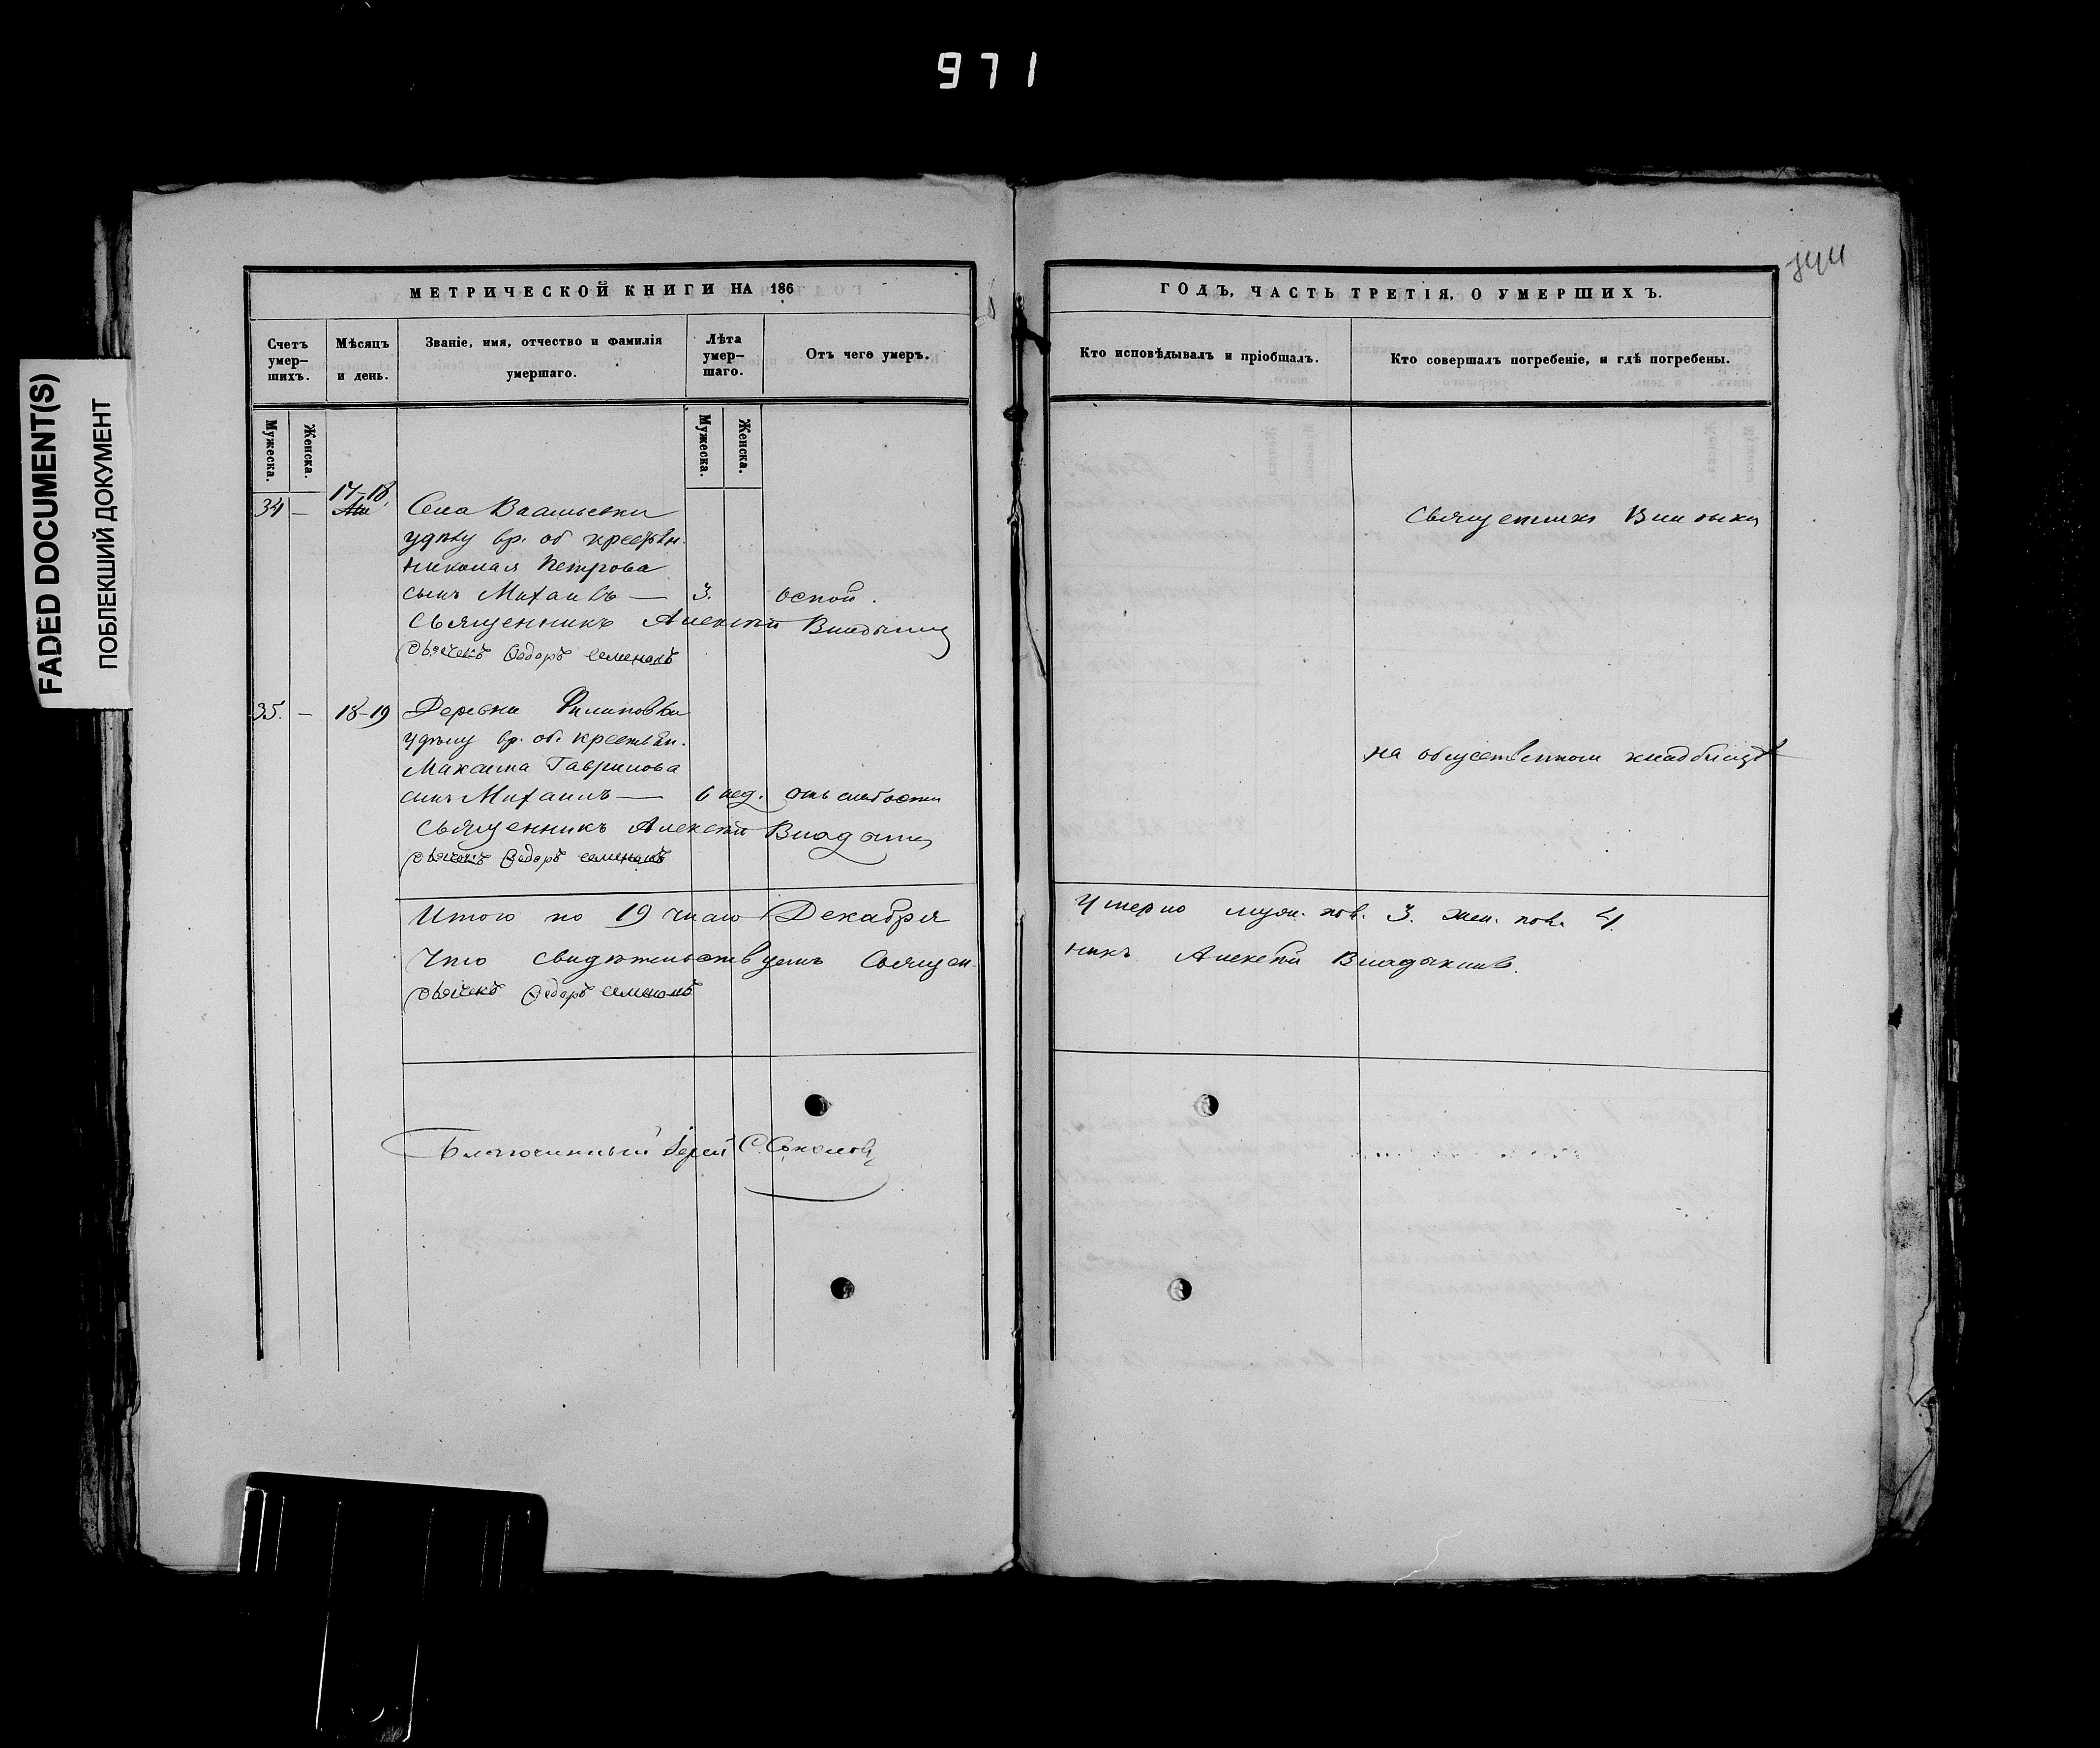 971
FADED DOCUMENT(S)
ПОБЛЕКШИЙ ДОКУМЕНТ
МЕТРИЧЕСКОЙ КНИГИ НА 186
Счетъ умер-шихъ.
Мѣсяцъ и день.
Званіе, имя, отчество и фамилія умершаго.
Лѣта умер-шаго.
Отъ чего умеръ.
Мужеска.
Женска.
Мужеска.
Женска.
17-18
34 — Села Васильевки
удѣлу вр. об. крестьян.
Николая Петрова
сынъ Михаилъ — 3. оспой.
Священникъ Алексѣй Владыкинъ
дьячекъ Ѳедоръ
35. — 18-19 Деревни Филиповки
удѣлу вр. об. крестьян.
Максима Гаврилова
сынъ Михаилъ — 6 нед. отъ слабости
Священникъ Алексѣй Владыкинъ
дьячекъ Ѳедоръ
Итого по 19 число Декабря
Что свидѣтельствуетъ Священ-
дьячекъ Ѳедоръ
Благочинный Іерей С. Соколовъ
ГОДЪ, ЧАСТЬ ТРЕТІЯ, О УМЕРШИХЪ.
Кто исповѣдывалъ и пріобщалъ.
Кто совершалъ погребеніе, и гдѣ погребены.
Священникъ
на общественномъ кладбищѣ
умерло муж. пол. 3. жен. пол. 4.
никъ Алексѣй Владыкинъ.